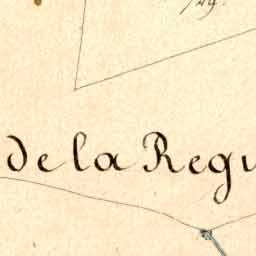 de la Regu